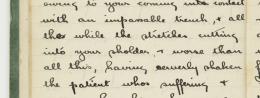 owing to your coming into contact
with an impassable trench, & all
the while the stretcher cutting
into your sholder, & worse than
all this, having severely shaken
the patient whos suffering &